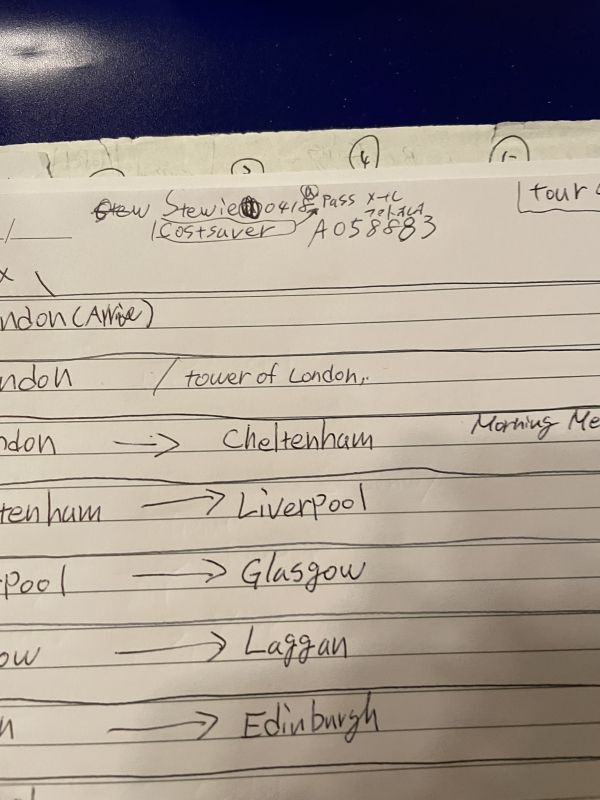 ④
Stewie 0418 Pass メール
Costsaver A058883
tour
ndon (Arrive)
ndon / tower of London,
ndon → Cheltenham Morning Me
tenham → Liverpool
rpool → Glasgow
ow → Laggan
n → Edinburgh